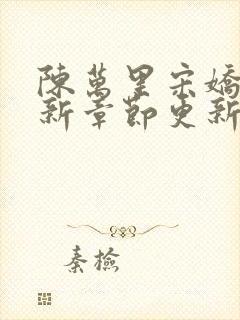 陳萬里宋嬌
新章節更新
秦檢